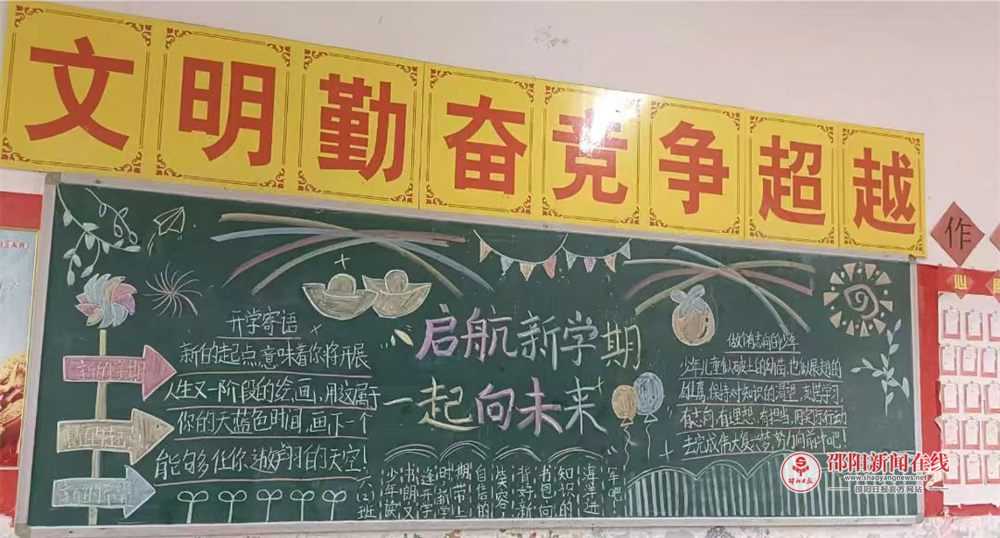 文明勤奋竞争超越
作
心
开学寄语
新的起点,意味着你将开展
人生又一阶段的绘画,用这属于
你的天蓝色时间,画下一个
能够任你遨翔的天空!
新的学期
新的起点
新的希望
启航新学期
一起向未来
做个有志向的少年
少年儿童似破土的幼苗,也似展翅的
雄鹰,保持对知识的渴望,刻苦学习,
有志向,有理想,有担当,用实际行动
去完成伟大复兴梦,努力向前冲吧!
六(2)班
少年
书朗又
逢开学
时新学
期带上
自信的
笑容
背好新
书包向
知识的
海洋进
军吧!
邵阳新闻在线
www.shaoyangnews.net
邵阳日报官方网站
邵阳日报